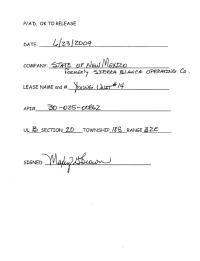 P/A'D. OK TO RELEASE
DATE: 6/23/2009
COMPANY: STATE OF NEW MEXICO
FORMERLY SIERRA BLANCA OPERATING CO.
LEASE NAME and #: YOUNG UNIT #14
API#: 30-025-00862
UL B SECTION 20 TOWNSHIP 18S RANGE 32E
SIGNED: